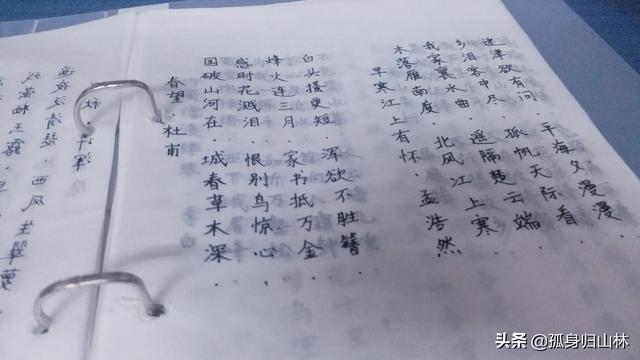 春望·杜甫
国破山河在·城春草木深·
感时花溅泪·恨别鸟惊心·
烽火连三月·家书抵万金·
白头搔更短·浑欲不胜簪·
早寒江上有怀·孟浩然
木落雁南度·北风江上寒·
我家襄水曲·遥隔楚云端·
乡泪客中尽·孤帆天际看·
迷津欲有问·平海夕漫漫·
秋·许浑
遥夜泛清瑟·西风生翠萝
残萤栖玉露·早
头条 @孤身归山林